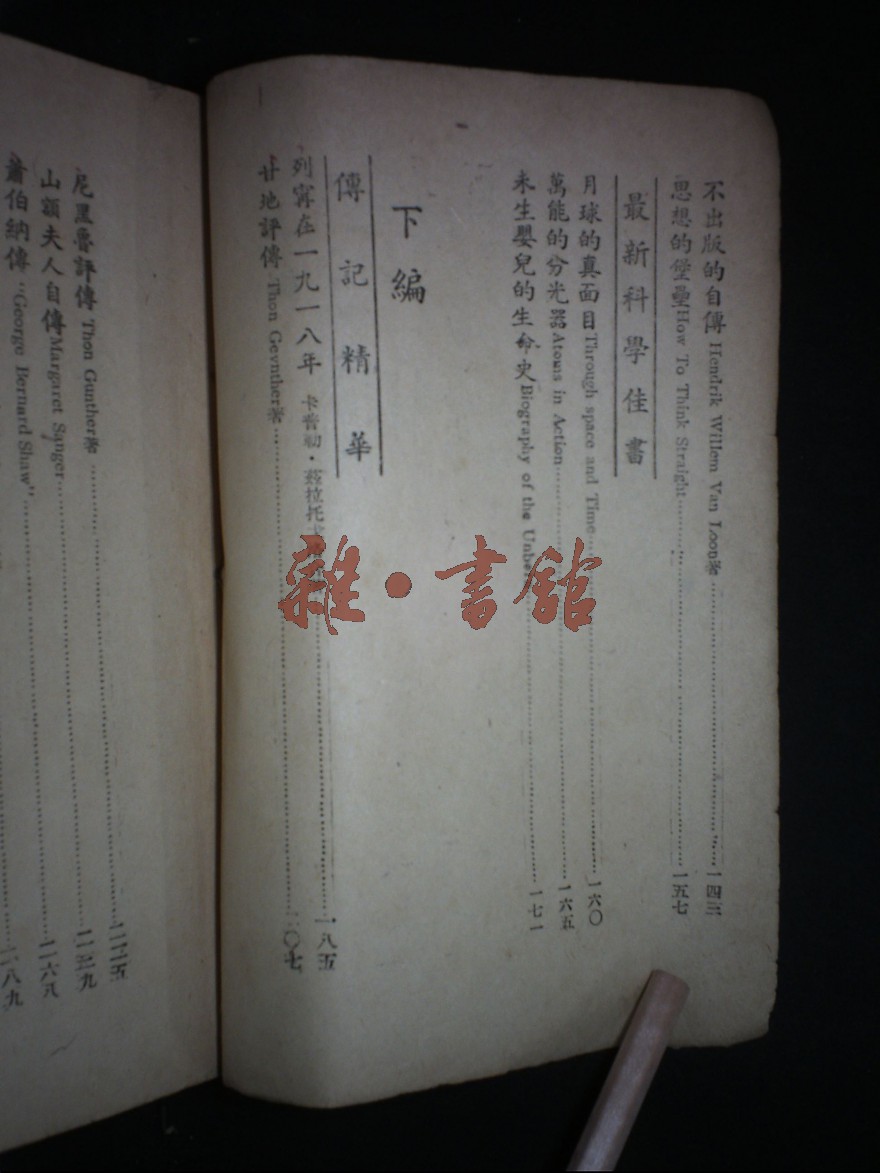 不出版的自傳 Hendrik Willem Van Loon著……一四三
思想的堡壘How To Think Straight……一五七
最新科學佳書
月球的真面目Through space and Time……一六〇
萬能的分光器Atoms in Action……一六五
未生嬰兒的生命史Biography of the……一七一
下編
傳記精華
列寧在一九一八年 卡普勒·茲拉托……一八五
甘地評傳 Thon Geynther著……二〇七
尼黑魯評傳 Thon Gunther著……二二五
山額夫人自傳Margaret Sanger……
蕭伯納傳 "George Bernard Shaw"……二六八
二八九
雜·書館